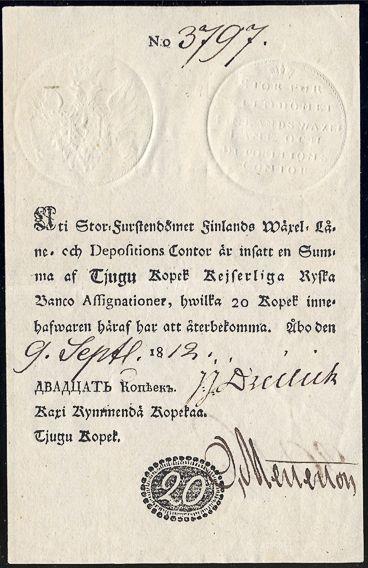 No 3797.
STOR FUR
DEPOSITIONS
CONTOR
Uti Stor-Furstendömet Finlands Wäxel- Lå-
ne- och Depositions Contor är insatt en Sum-
ma af Tjugu Kopek Kejserliga Ryska
Banco Assignationer, hwilka 20 Kopek inne-
hafwaren häraf har att återbekomma. Åbo den
9. Septl. 1812.
ДВАДЦАТЬ Копѣекъ.
Kaxi Kymmendä Kopekaa.
Tjugu Kopek.
20